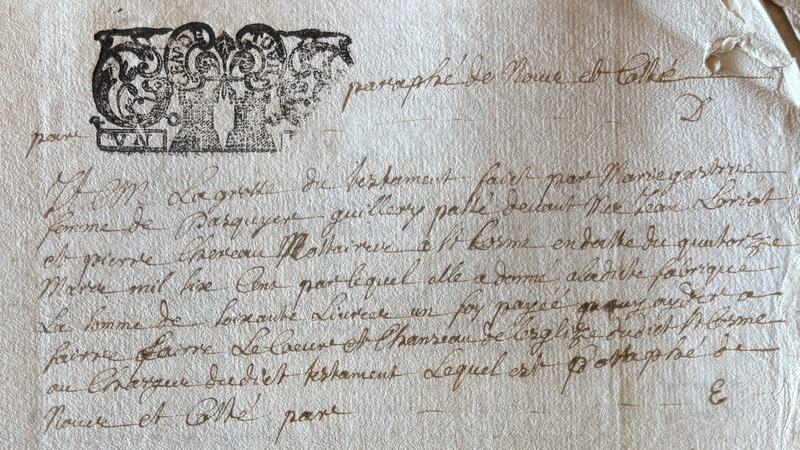 paraphé de Nous et Cotté
par D
It M La grosse du testament faict par Marie
femme de Pasquyer guillery passé devant Mre Jean Loriot
et pierre Chereau Nottaires a St Cosme en datte du quatorze
Mars mil six Cent par lequel elle a donné a ladicte fabrique
La somme de soixante Livres un foy payée pour ayder a
fairre fairre Le Coeur et Chanseau de L'eglize dudict St Cosme
au Chargue dudict testament Lequel est Paraphé de
Nous et Cotté par E